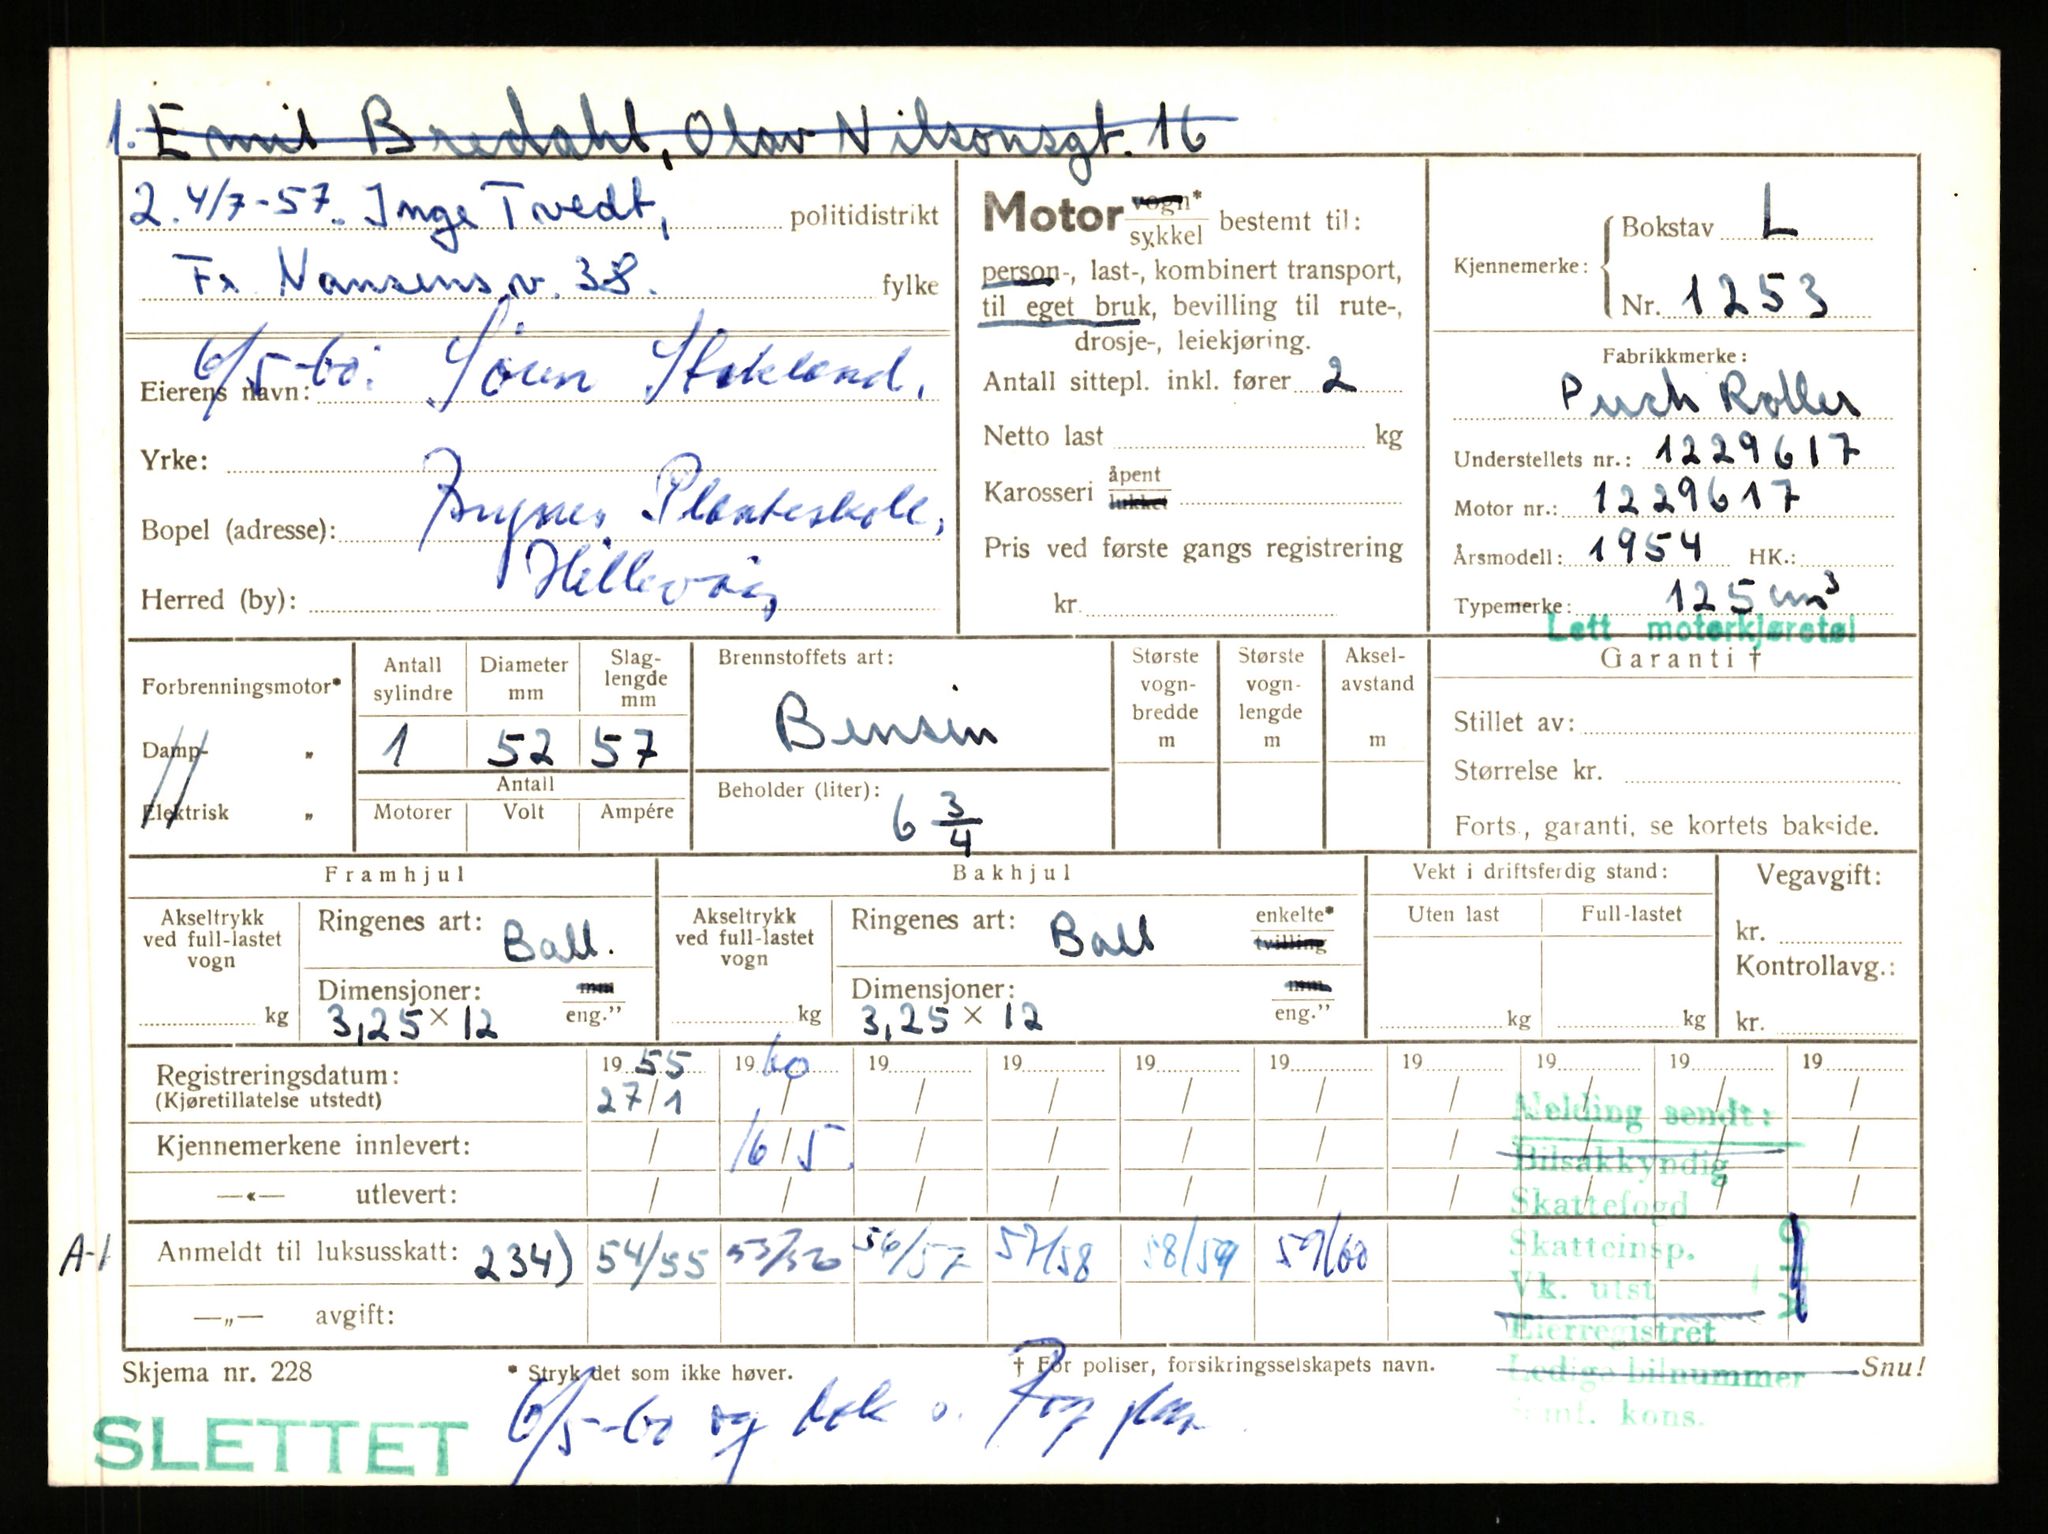 1. Emil Bredahl, Olav Nilsonsgt. 16
2. 4/7-57. Inge Tvedt, politidistrikt
Fr. Nansens v. 38. fylke
6/5-60: Søren Stokland,
Eierens navn:
Yrke:
Planteskole,
Bopel (adresse):
Hillevåg,
Herred (by):
Motor vogn* sykkel bestemt til:
person-, last-, kombinert transport,
til eget bruk, bevilling til rute-,
drosje-, leiekjøring.
Antall sittepl. inkl. fører 2
Netto last kg
Karosseri åpent lukket
Pris ved første gangs registrering
kr.
Kjennemerke: Bokstav L
Nr. 1253
Fabrikkmerke:
Puch Roller
Understellets nr.: 1229617
Motor nr.: 1229617
Årsmodell: 1954 HK.:
Typemerke: 125 cm³
Lett motorkjøretøi
Forbrenningsmotor*
Damp- „
Elektrisk „
Antall sylindre 1
Diameter mm 52
Slag-lengde mm 57
Antall
Motorer Volt Ampére
Brennstoffets art:
Bensin
Beholder (liter):
6 3/4
Største vogn-bredde m
Største vogn-lengde m
Aksel-avstand m
Garanti †
Stillet av:
Størrelse kr.
Forts., garanti, se kortets bakside.
Framhjul
Akseltrykk ved full-lastet vogn kg
Ringenes art: Ball.
Dimensjoner: mm eng."
3,25 × 12
Bakhjul
Akseltrykk ved full-lastet vogn kg
Ringenes art: Ball enkelte* tvilling
Dimensjoner: mm eng."
3,25 × 12
Vekt i driftsferdig stand:
Uten last Full-lastet
kg kg
Vegavgift:
kr.
Kontrollavg.:
kr.
Registreringsdatum: 19 55 19 60 19 19 19 19 19 19 19 19
(Kjøretillatelse utstedt) 27/1 / / / / / / / / /
Kjennemerkene innlevert: / 16/5. / / / / / / / /
—«— utlevert: / / / / / / / / / /
A-1 Anmeldt til luksusskatt: 234) 54/55 55/56 56/57 57/58 58/59 59/60
—„— avgift:
Melding sendt:
Bilsakkyndig
Skattefogd
Skatteinsp.
Vk. utst
Eierregistret
Ledige bilnummer
kons.
Skjema nr. 228 * Stryk det som ikke høver. † For poliser, forsikringsselskapets navn. Snu!
6/5-60 og
SLETTET